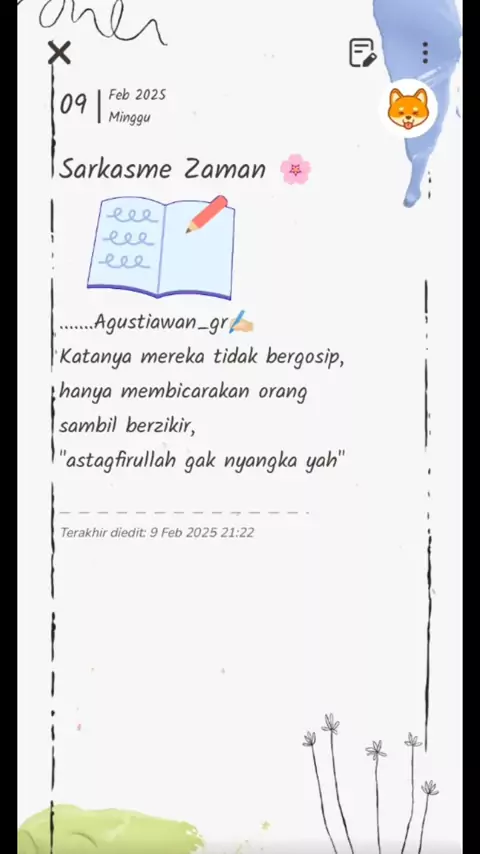 09 | Feb 2025
Minggu
Sarkasme Zaman 🌸
.......Agustiawan_gr✍🏼
Katanya mereka tidak bergosip,
hanya membicarakan orang
sambil berzikir,
"astagfirullah gak nyangka yah"
Terakhir diedit: 9 Feb 2025 21:22